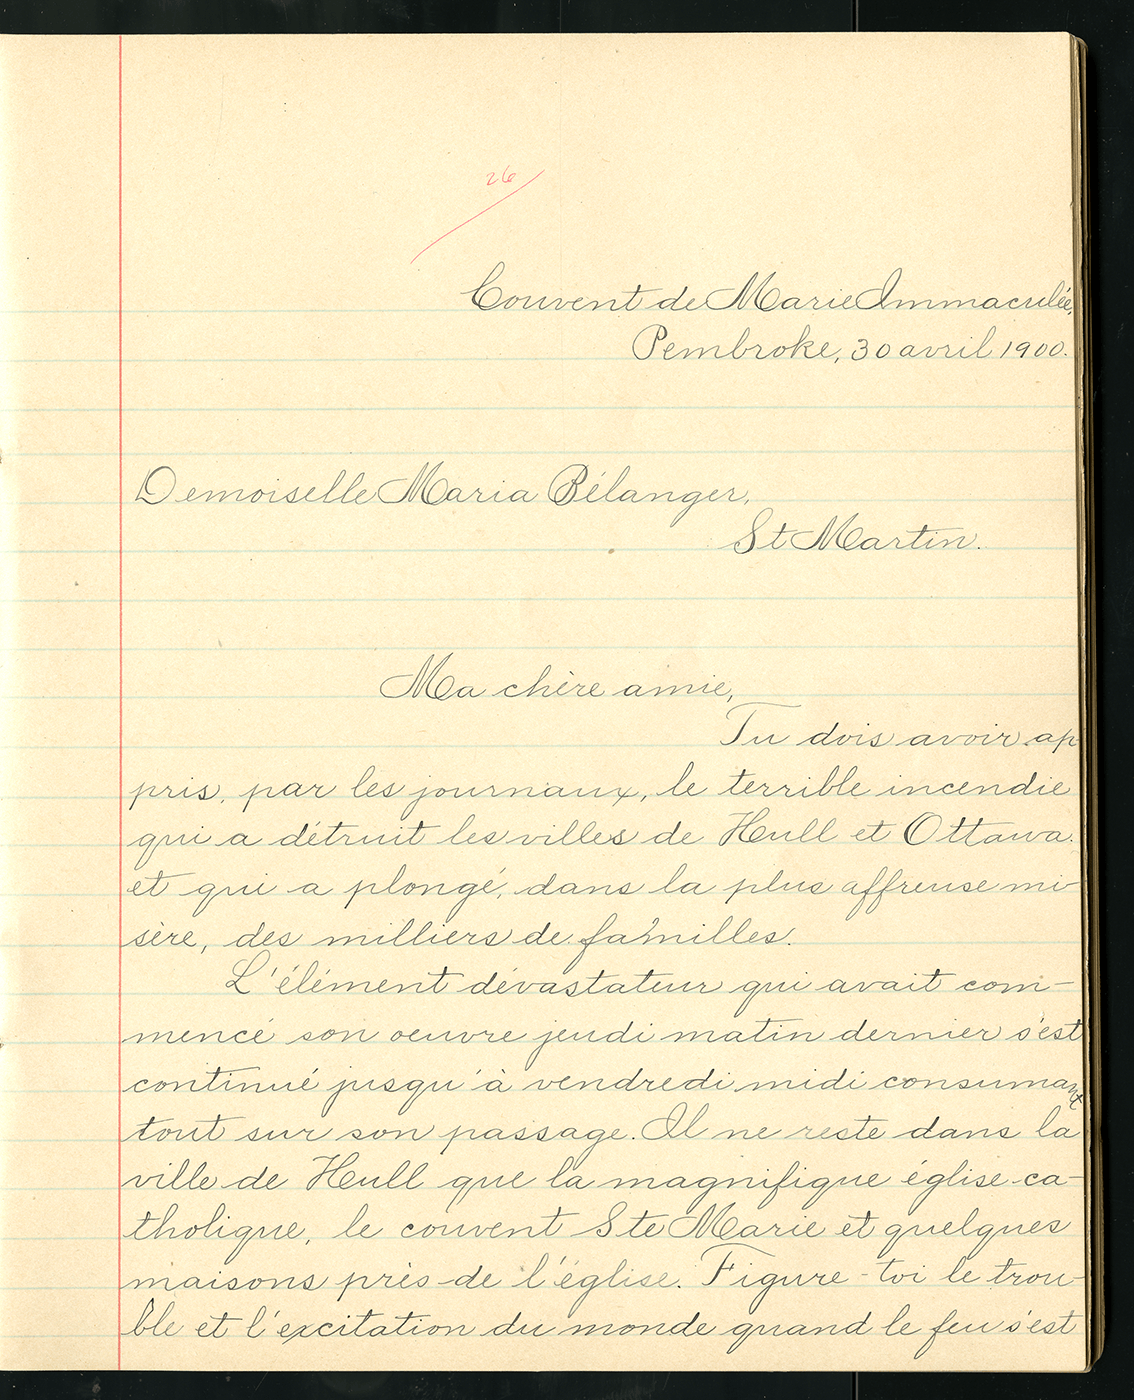 26
Couvent de Marie Immaculée,
Pembroke, 30 avril 1900.
Demoiselle Maria Bélanger,
St Martin.
Ma chère amie,
Tu dois avoir ap
pris, par les journaux, le terrible incendie
qui a détruit les villes de Hull et Ottawa.
et qui a plongé, dans la plus affreuse mi-
sère, des milliers de familles.
L'élément dévastateur qui avait com-
mencé son oeuvre jeudi matin dernier s'est
continué jusqu'à vendredi midi consumant
tout sur son passage. Il ne reste dans la
ville de Hull que la magnifique église ca-
tholique, le couvent Ste Marie et quelques
maisons près de l'église. Figure-toi le trou-
ble et l'excitation du monde quand le feu s'est